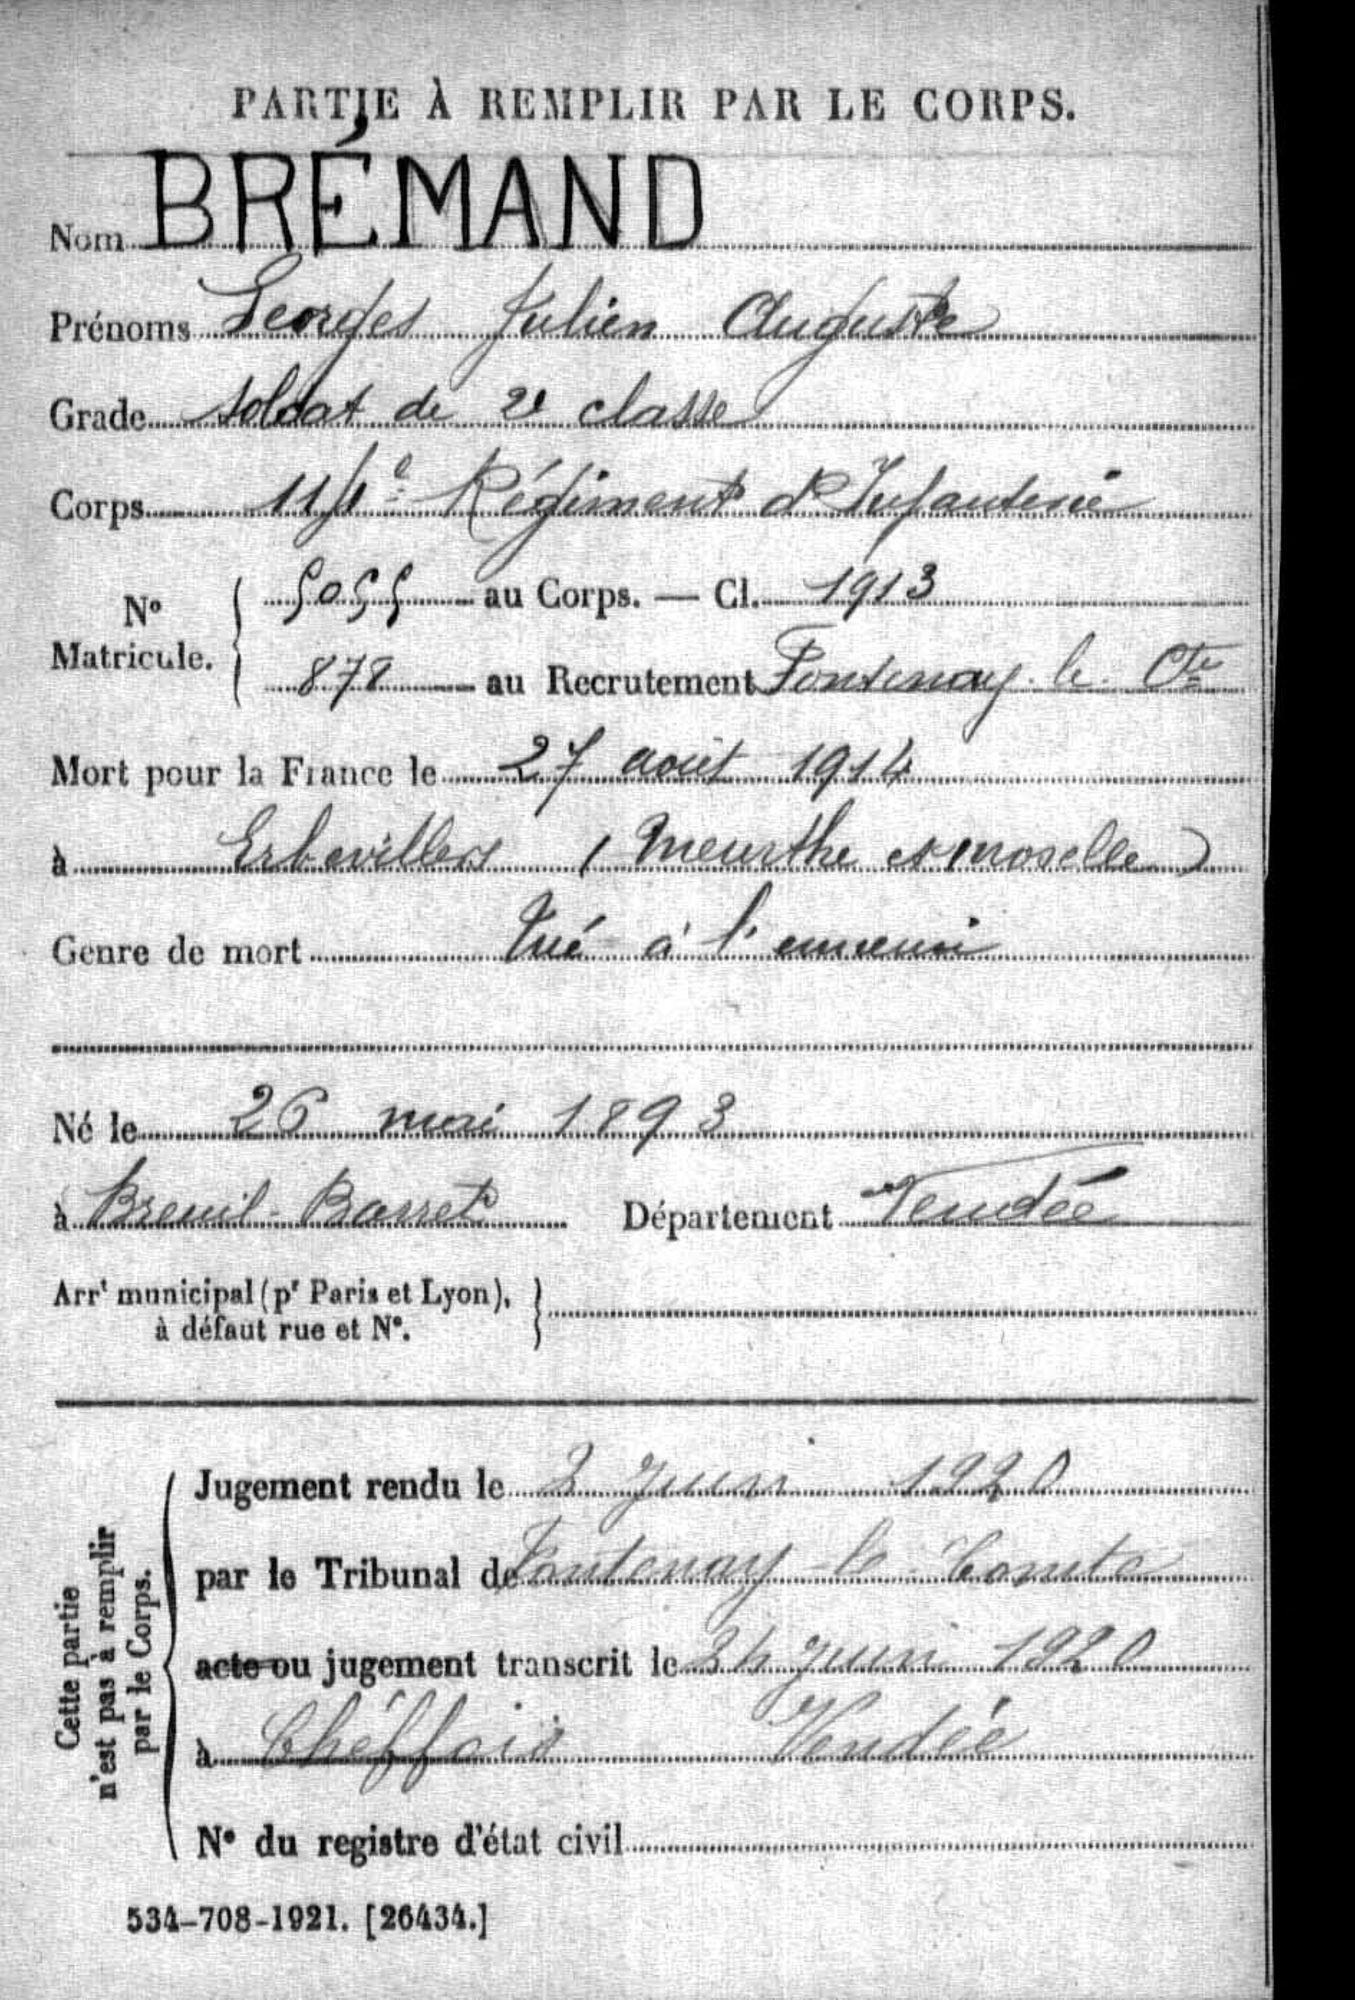 PARTIE À REMPLIR PAR LE CORPS.
Nom BRÉMAND
Prénoms Georges Julien Auguste
Grade soldat de 2e classe
Corps 114e Régiment d'Infanterie
No Matricule. { 5055 au Corps. — Cl. 1913
878 au Recrutement Fontenay le Cte
Mort pour la France le 27 août 1914
à Erbevillers (Meurthe et Moselle)
Genre de mort Tué à l'ennemi
Né le 26 mai 1893
à Breuil-Barret Département Vendée
Arrt municipal (pr Paris et Lyon), }
à défaut rue et No.
Cette partie
n'est pas à remplir
par le Corps.
Jugement rendu le 2 juin 1920
par le Tribunal de Fontenay le Comte
acte ou jugement transcrit le 24 juin 1920
à Chéffois Vendée
No du registre d'état civil
534-708-1921. [26434.]